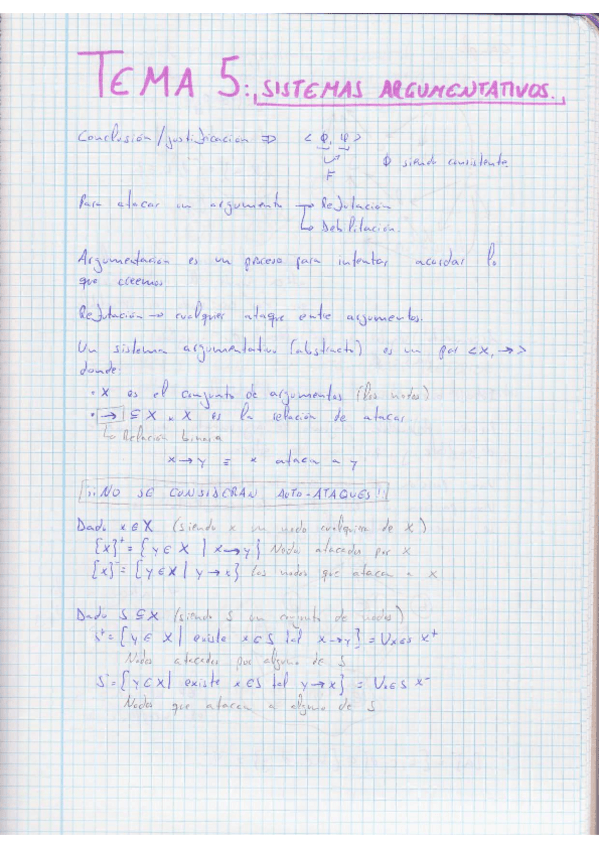 TEMA 5: SISTEMAS ARGUMENTATIVOS.
Conclusión/justificación ⇒ < Φ, φ >
⊢ Φ siendo consistente.
Para atacar un argumento → Refutación
↳ Debilitación.
Argumentación es un proceso para intentar acordar lo
que creemos
Refutación → cualquier ataque entre argumentos.
Un sistema argumentativo (abstracto) es un par <X, →>
donde:
· X es el conjunto de argumentos (los nodos)
· → ⊆ X x X es la relación de atacar
↳ Relación binaria
x → y ≡ x ataca a y
¡¡NO SE CONSIDERAN AUTO-ATAQUES!!
Dado x ∈ X (siendo x un nodo cualquiera de X)
{x}⁺ = {y ∈ X | x → y} Nodos atacados por x
{x}⁻ = {y ∈ X | y → x} Los nodos que atacan a x
Dado S ⊆ X (siendo S un conjunto de nodos)
S⁺ = {y ∈ X | existe x ∈ S tal x → y} = ∪x∈S x⁺
Nodos atacados por alguno de S
S⁻ = {y ∈ X | existe x ∈ S tal y → x} = ∪x∈S x⁻
Nodos que atacan a alguno de S